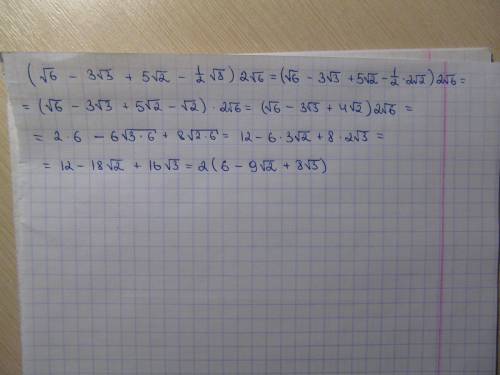 (√6 - 3√3 + 5√2 - 1/2 √8) 2√6 = (√6 - 3√3 + 5√2 - 1/2 · 2√2) 2√6 =
= (√6 - 3√3 + 5√2 - √2) · 2√6 = (√6 - 3√3 + 4√2) 2√6 =
= 2 · 6 - 6√3·6 + 8√2·6 = 12 - 6 · 3√2 + 8 · 2√3 =
= 12 - 18√2 + 16√3 = 2(6 - 9√2 + 8√3)